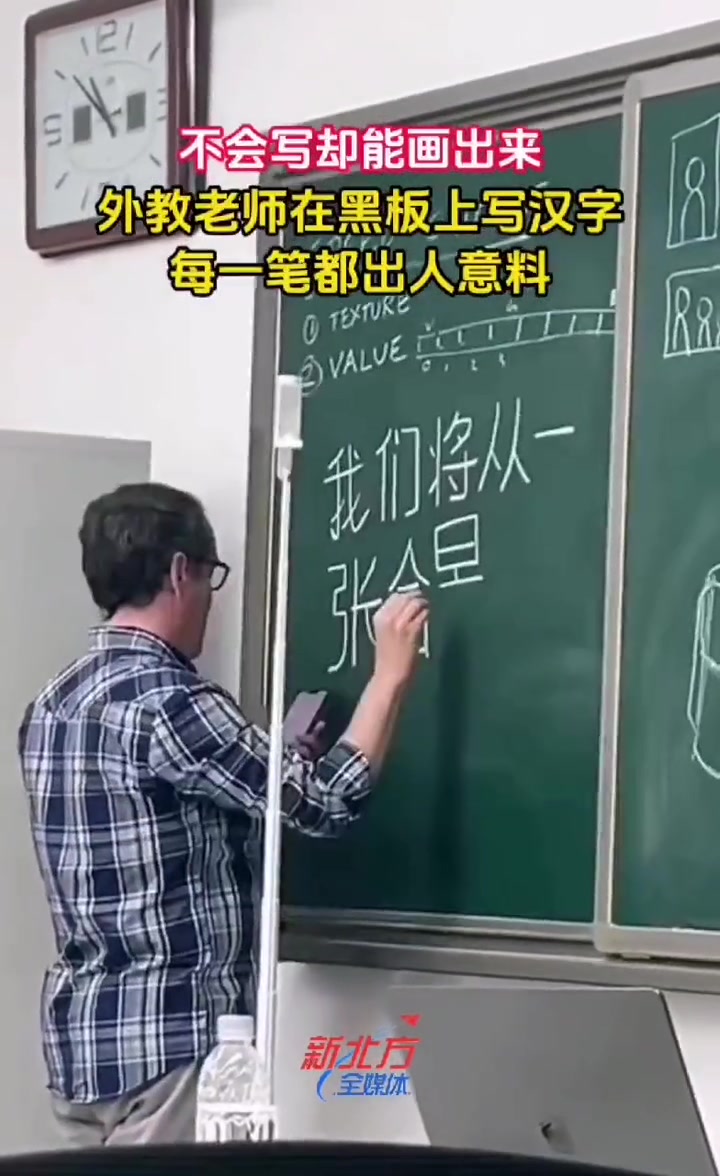 不会写却能画出来
外教老师在黑板上写汉字
每一笔都出人意料
① TEXTURE
② VALUE
0 1 2 3
我们将从一
张
12
新北方
全媒体